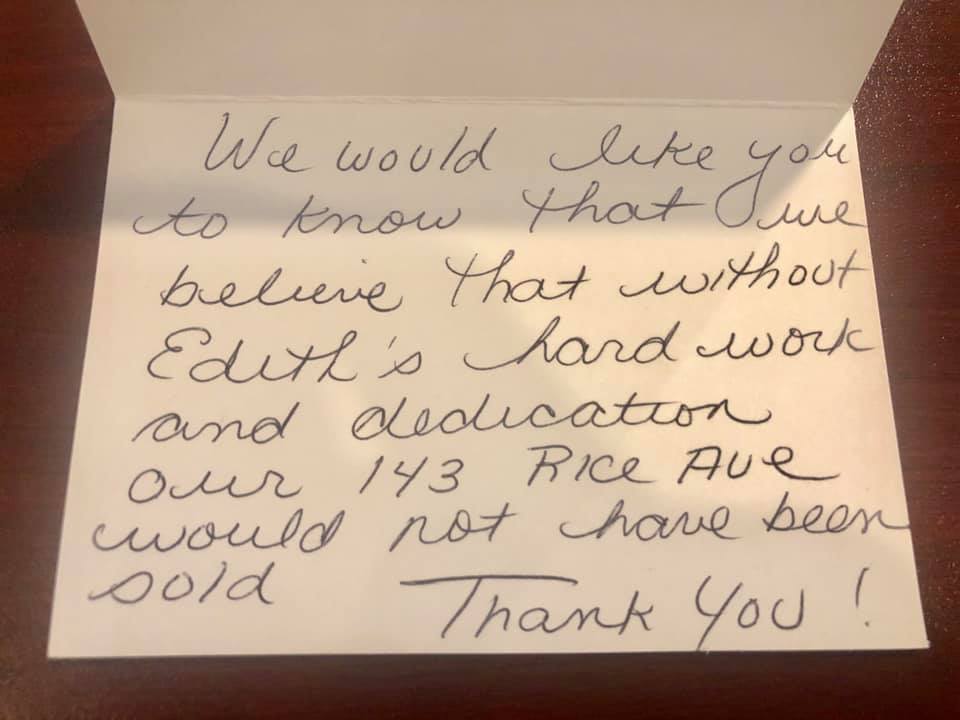 We would like you
to know that we
believe that without
Edith's hard work
and dedication
our 143 Rice Ave
would not have been
sold Thank You!